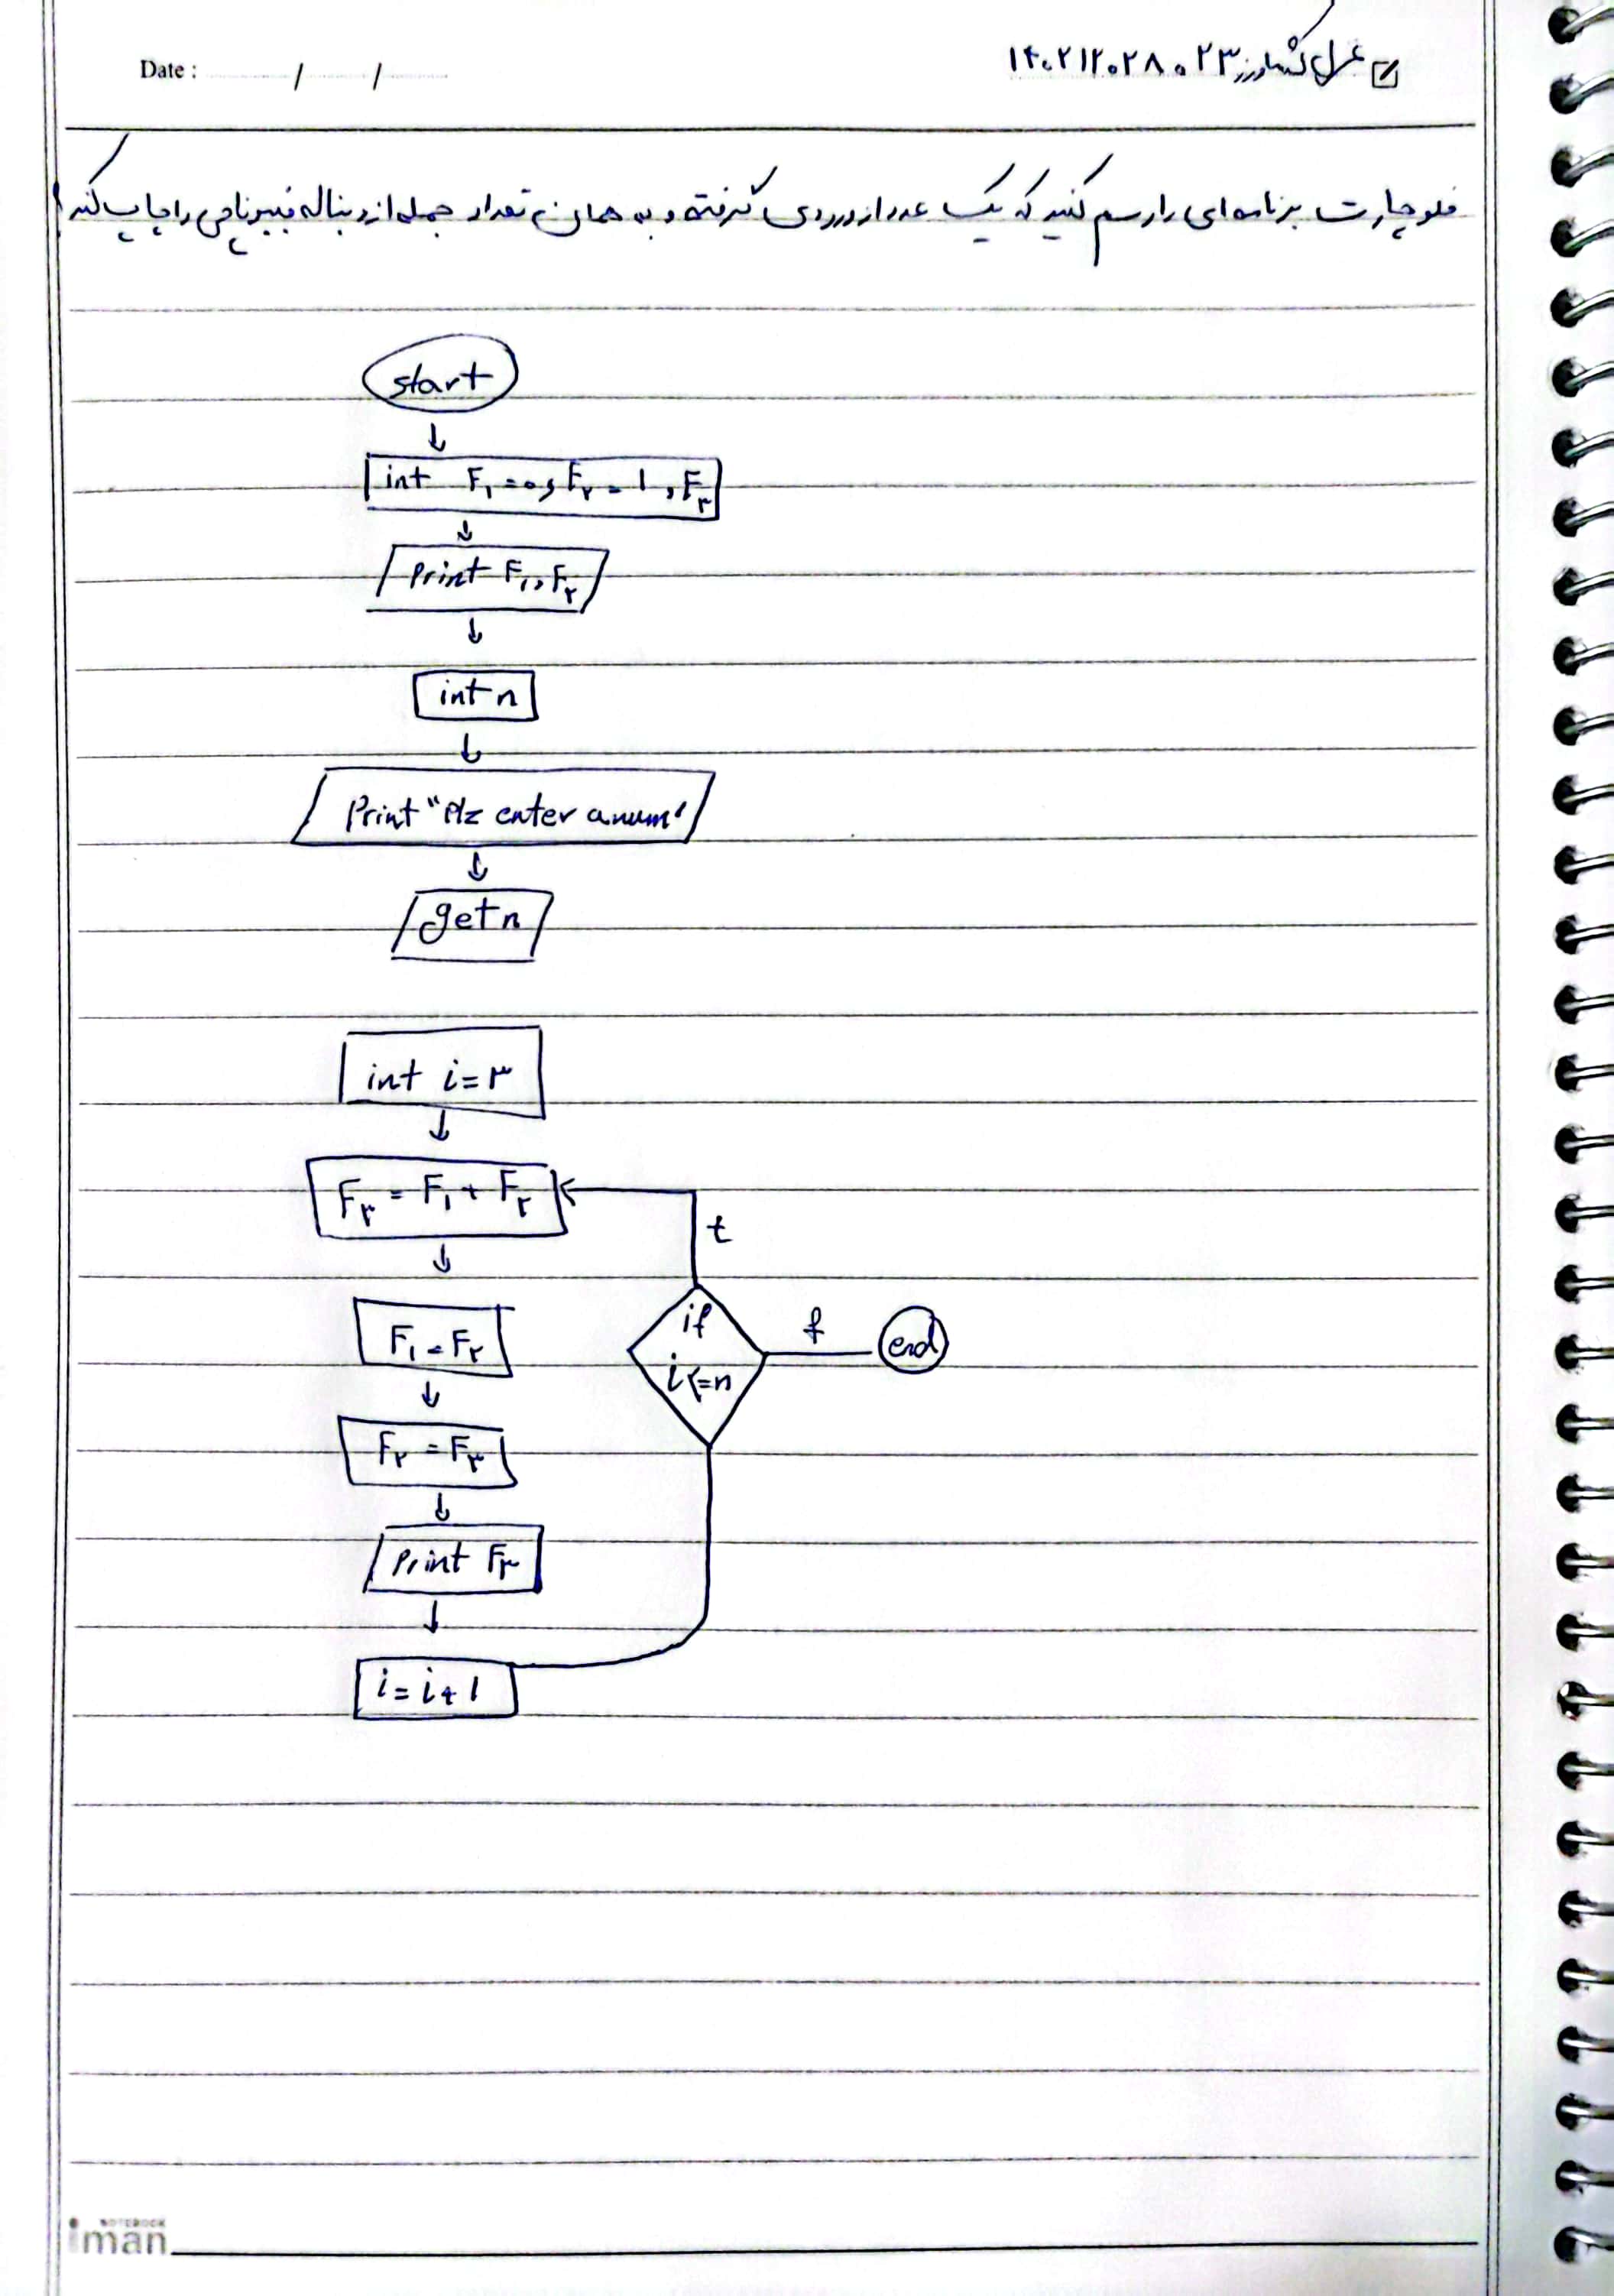 Date : / /
غزل کشاورز ۱۴۰۲۱۲۰۲۸۰۲۳
فلوچارت برنامه‌ای را رسم کنید که یک عدد از ورودی گرفته و به همان تعداد جمله از دنباله فیبوناچی را چاپ کند
start
int F۱ = ۰ , F۲ = ۱ , F۳
print F۱, F۲
int n
Print "Plz enter a num"
get n
int i = ۳
F۳ = F۱ + F۲
t
F۱ = F۲
if
i <= n
f
end
F۲ = F۳
print F۳
i = i + ۱
iman
NOTEBOOK